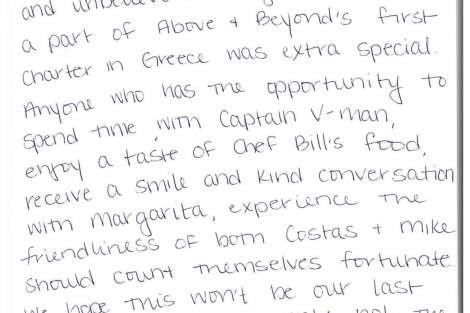 and
a part of Above & Beyond's first
Charter in Greece was extra special.
Anyone who has the opportunity to
spend time with Captain V-man,
enjoy a taste of Chef Bill's food,
receive a smile and kind conversation
with Margarita, experience the
friendliness of both Costas + Mike
should count themselves fortunate.
We hope this won't be our last